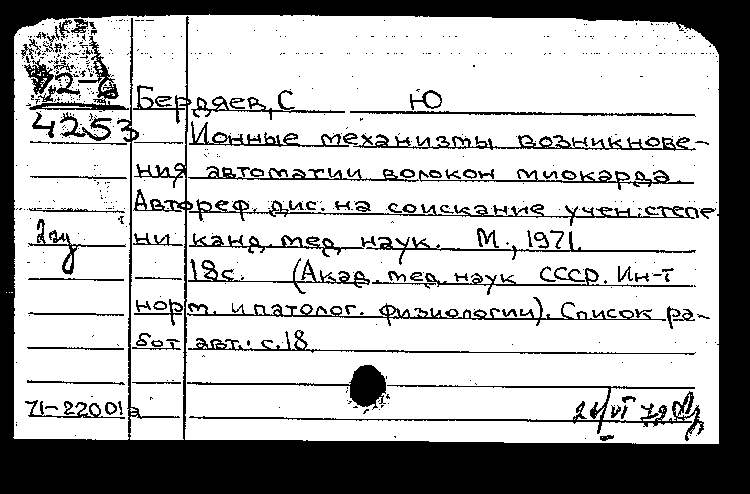 72-6
4253
Бердяев, С Ю
Ионные механизмы возникнове-
ния автоматии волокон миокарда.
Автореф. дис. на соискание учен. степе
ни канд. мед. наук. М., 1971.
18с. (Акад. мед. наук СССР. Ин-т
норм. и патолог. физиологии). Список ра-
бот авт.: с.18.
71-22001а